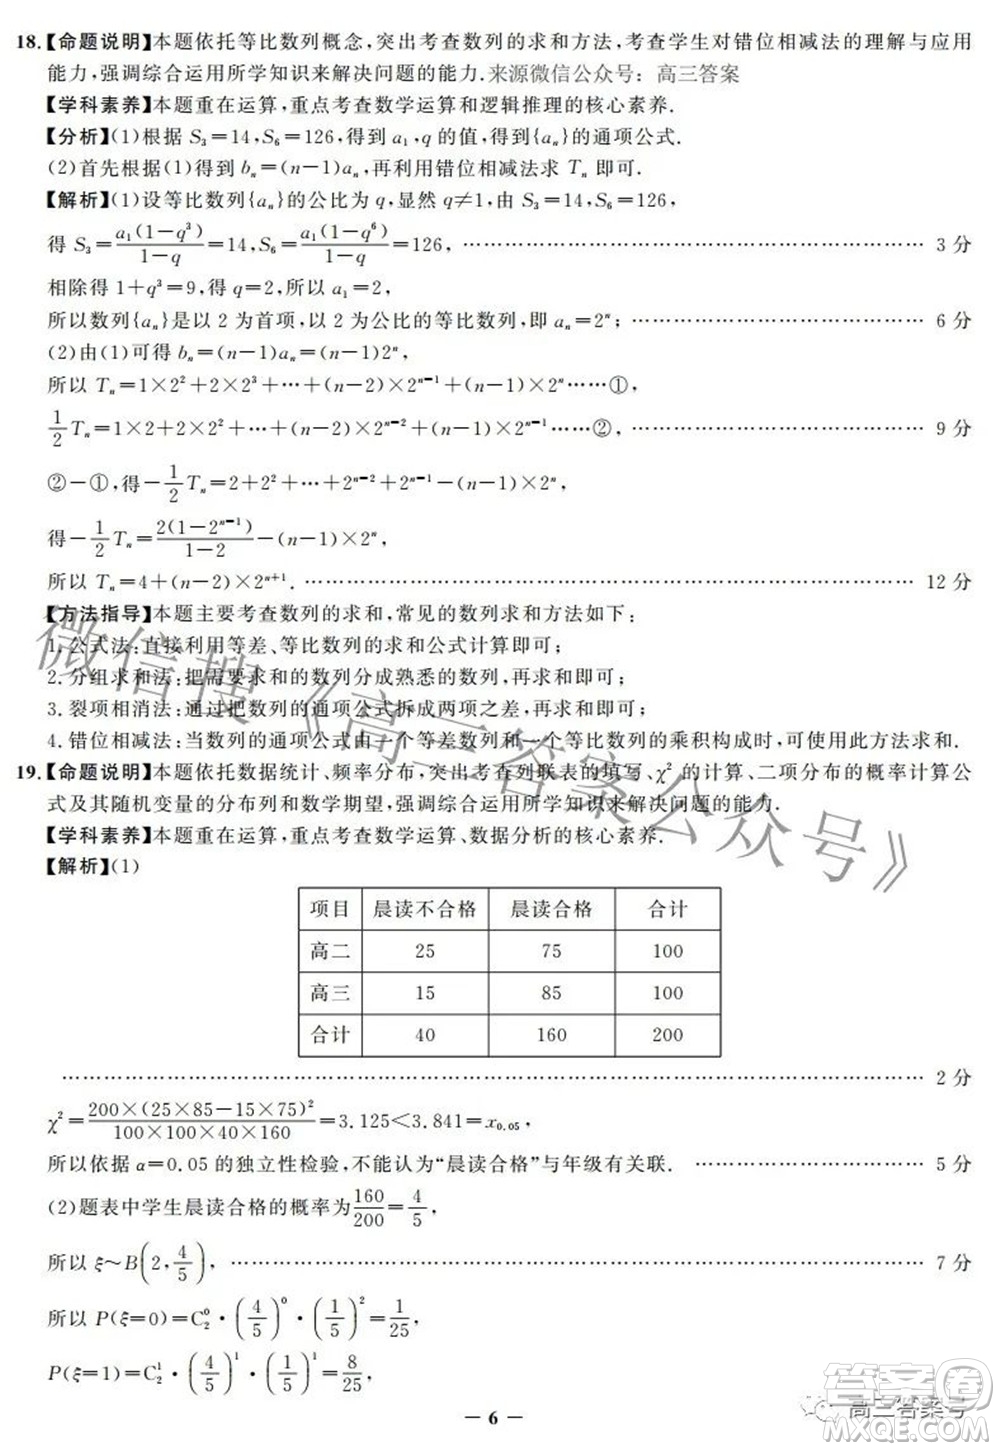 18.【命题说明】本题依托等比数列概念,突出考查数列的求和方法,考查学生对错位相减法的理解与应用
能力,强调综合运用所学知识来解决问题的能力.来源微信公众号：高三答案
【学科素养】本题重在运算,重点考查数学运算和逻辑推理的核心素养.
【分析】(1)根据 S₃=14,S₆=126,得到 a₁,q 的值,得到{aₙ}的通项公式.
(2)首先根据(1)得到 bₙ=(n-1)aₙ,再利用错位相减法求 Tₙ 即可.
【解析】(1)设等比数列{aₙ}的公比为 q,显然 q≠1,由 S₃=14,S₆=126,
得 S₃=a₁(1-q³)/(1-q)=14,S₆=a₁(1-q⁶)/(1-q)=126, …… 3 分
相除得 1+q³=9,得 q=2,所以 a₁=2,
所以数列{aₙ}是以 2 为首项,以 2 为公比的等比数列,即 aₙ=2ⁿ; …… 6 分
(2)由(1)可得 bₙ=(n-1)aₙ=(n-1)2ⁿ,
所以 Tₙ=1×2²+2×2³+…+(n-2)×2ⁿ⁻¹+(n-1)×2ⁿ……①,
1/2 Tₙ=1×2+2×2²+…+(n-2)×2ⁿ⁻²+(n-1)×2ⁿ⁻¹……②, …… 9 分
②-①,得-1/2 Tₙ=2+2²+…+2ⁿ⁻²+2ⁿ⁻¹-(n-1)×2ⁿ,
得-1/2 Tₙ=2(1-2ⁿ⁻¹)/(1-2)-(n-1)×2ⁿ,
所以 Tₙ=4+(n-2)×2ⁿ⁺¹. …… 12 分
【方法指导】本题主要考查数列的求和,常见的数列求和方法如下:
1. 公式法:直接利用等差、等比数列的求和公式计算即可;
2. 分组求和法:把需要求和的数列分成熟悉的数列,再求和即可;
3. 裂项相消法:通过把数列的通项公式拆成两项之差,再求和即可;
4. 错位相减法:当数列的通项公式由一个等差数列和一个等比数列的乘积构成时,可使用此方法求和.
19.【命题说明】本题依托数据统计、频率分布,突出考查列联表的填写、χ² 的计算、二项分布的概率计算公
式及其随机变量的分布列和数学期望,强调综合运用所学知识来解决问题的能力.
【学科素养】本题重在运算,重点考查数学运算、数据分析的核心素养.
【解析】(1)
项目 晨读不合格 晨读合格 合计
高二 25 75 100
高三 15 85 100
合计 40 160 200
…… 2 分
χ²=200×(25×85-15×75)²/(100×100×40×160)=3.125<3.841=x₀.₀₅,
所以依据 α=0.05 的独立性检验,不能认为“晨读合格”与年级有关联. …… 5 分
(2)题表中学生晨读合格的概率为160/200=4/5,
所以 ξ～B(2,4/5), …… 7 分
所以 P(ξ=0)=C₂⁰·(4/5)⁰·(1/5)²=1/25,
P(ξ=1)=C₂¹·(4/5)¹·(1/5)¹=8/25,
— 6 —
微信搜《高三答案公众号》
高三答案号
答案圈
MXQE.COM